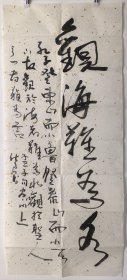 觀海難為水
孔子登東山而小魯登泰山而小天
下故觀於海者難為水遊於聖人
之門者難為言